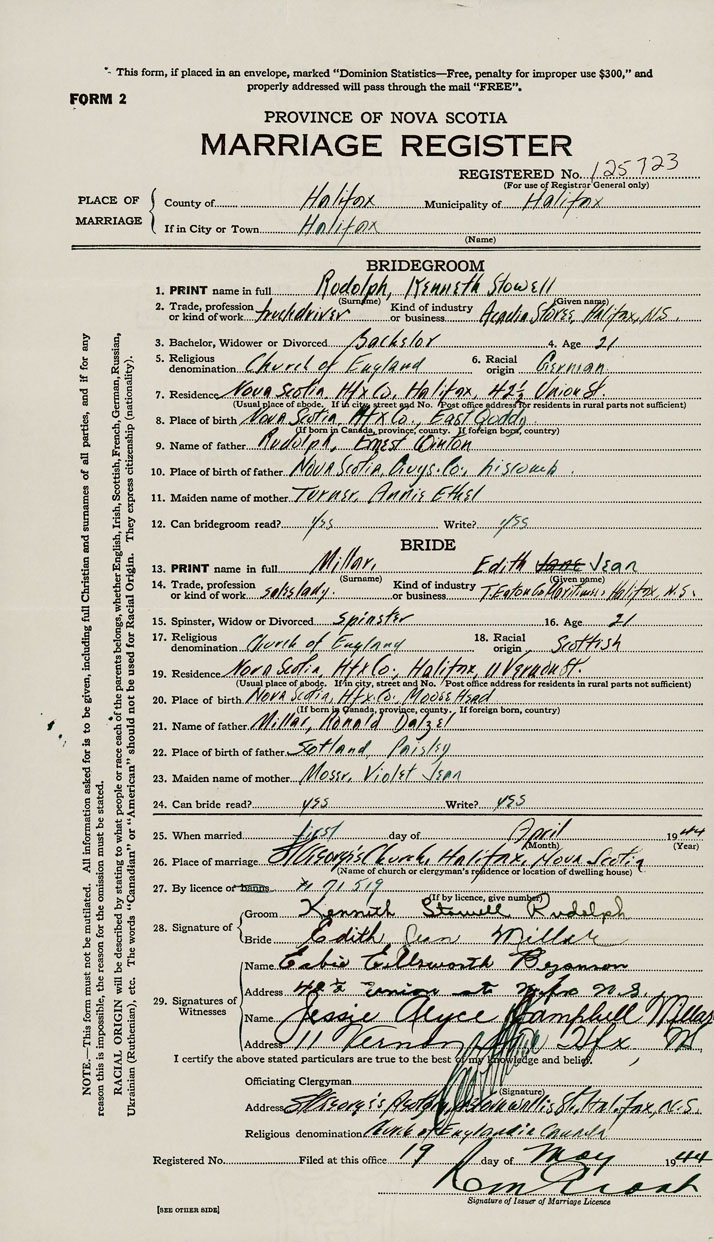 *- This form, if placed in an envelope, marked "Dominion Statistics—Free, penalty for improper use $300," and
properly addressed will pass through the mail "FREE".
FORM 2
PROVINCE OF NOVA SCOTIA
MARRIAGE REGISTER
REGISTERED No. 125723
(For use of Registrar General only)
PLACE OF MARRIAGE
County of Halifax Municipality of Halifax
If in City or Town Halifax
(Name)
BRIDEGROOM
1. PRINT name in full Rudolph, Kenneth Stowell
(Surname) (Given name)
2. Trade, profession or kind of work truckdriver Kind of industry or business Acadia Stores, Halifax, N.S.
3. Bachelor, Widower or Divorced Bachelor 4. Age 21
5. Religious denomination Church of England 6. Racial origin German
7. Residence Nova Scotia, Hfx Co., Halifax, 42½ Union St.
(Usual place of abode. If in city, street and No. Post office address for residents in rural parts not sufficient)
8. Place of birth Nova Scotia, Hfx Co., East
(If born in Canada, province, county. If foreign born, country)
9. Name of father Rudolph, Ernest Winton
10. Place of birth of father Nova Scotia, Guys. Co., Liscomb.
11. Maiden name of mother Turner, Annie Ethel
12. Can bridegroom read? yes Write? yes
BRIDE
13. PRINT name in full Millar, Edith Jane Jean
(Surname) (Given name)
14. Trade, profession or kind of work saleslady. Kind of industry or business T. Eaton Co Maritimes, Halifax, N.S.
15. Spinster, Widow or Divorced Spinster 16. Age 21
17. Religious denomination Church of England 18. Racial origin Scottish
19. Residence Nova Scotia, Hfx Co., Halifax, 11 Vernon St.
(Usual place of abode. If in city, street and No. Post office address for residents in rural parts not sufficient)
20. Place of birth Nova Scotia, Hfx. Co. Moose Head
(If born in Canada, province, county. If foreign born, country)
21. Name of father Millar, Ronald Dalzel
22. Place of birth of father Scotland, Paisley
23. Maiden name of mother Moser, Violet Jean
24. Can bride read? yes Write? yes
25. When married first day of April 1944
(Month) (Year)
26. Place of marriage St George's Church, Halifax, Nova Scotia
(Name of church or clergyman's residence or location of dwelling house)
27. By licence or banns # 71519
(If by licence, give number)
28. Signature of
Groom Kenneth Stowell Rudolph
Bride Edith Jean Millar
29. Signatures of Witnesses
Name Ellsworth Bezanson
Address 42½ Union st Hfx N.S.
Name Jessie Alyce Campbell Millar
Address 11 Vernon Hfx
I certify the above stated particulars are true to the best of my knowledge and belief.
Officiating Clergyman
(Signature)
Address St George's Rectory, Cornwallis St, Halifax, N.S.
Religious denomination Church of England in Canada
Registered No. Filed at this office 19 day of May 1944
Signature of Issuer of Marriage Licence
[SEE OTHER SIDE]
NOTE.—This form must not be mutilated. All information asked for is to be given, including full Christian and surnames of all parties, and if for any
reason this is impossible, the reason for the omission must be stated.
RACIAL ORIGIN will be described by stating to what people or race each of the parents belongs, whether English, Irish, Scottish, French, German, Russian,
Ukrainian (Ruthenian), etc. The words "Canadian" or "American" should not be used for Racial Origin. They express citizenship (nationality).